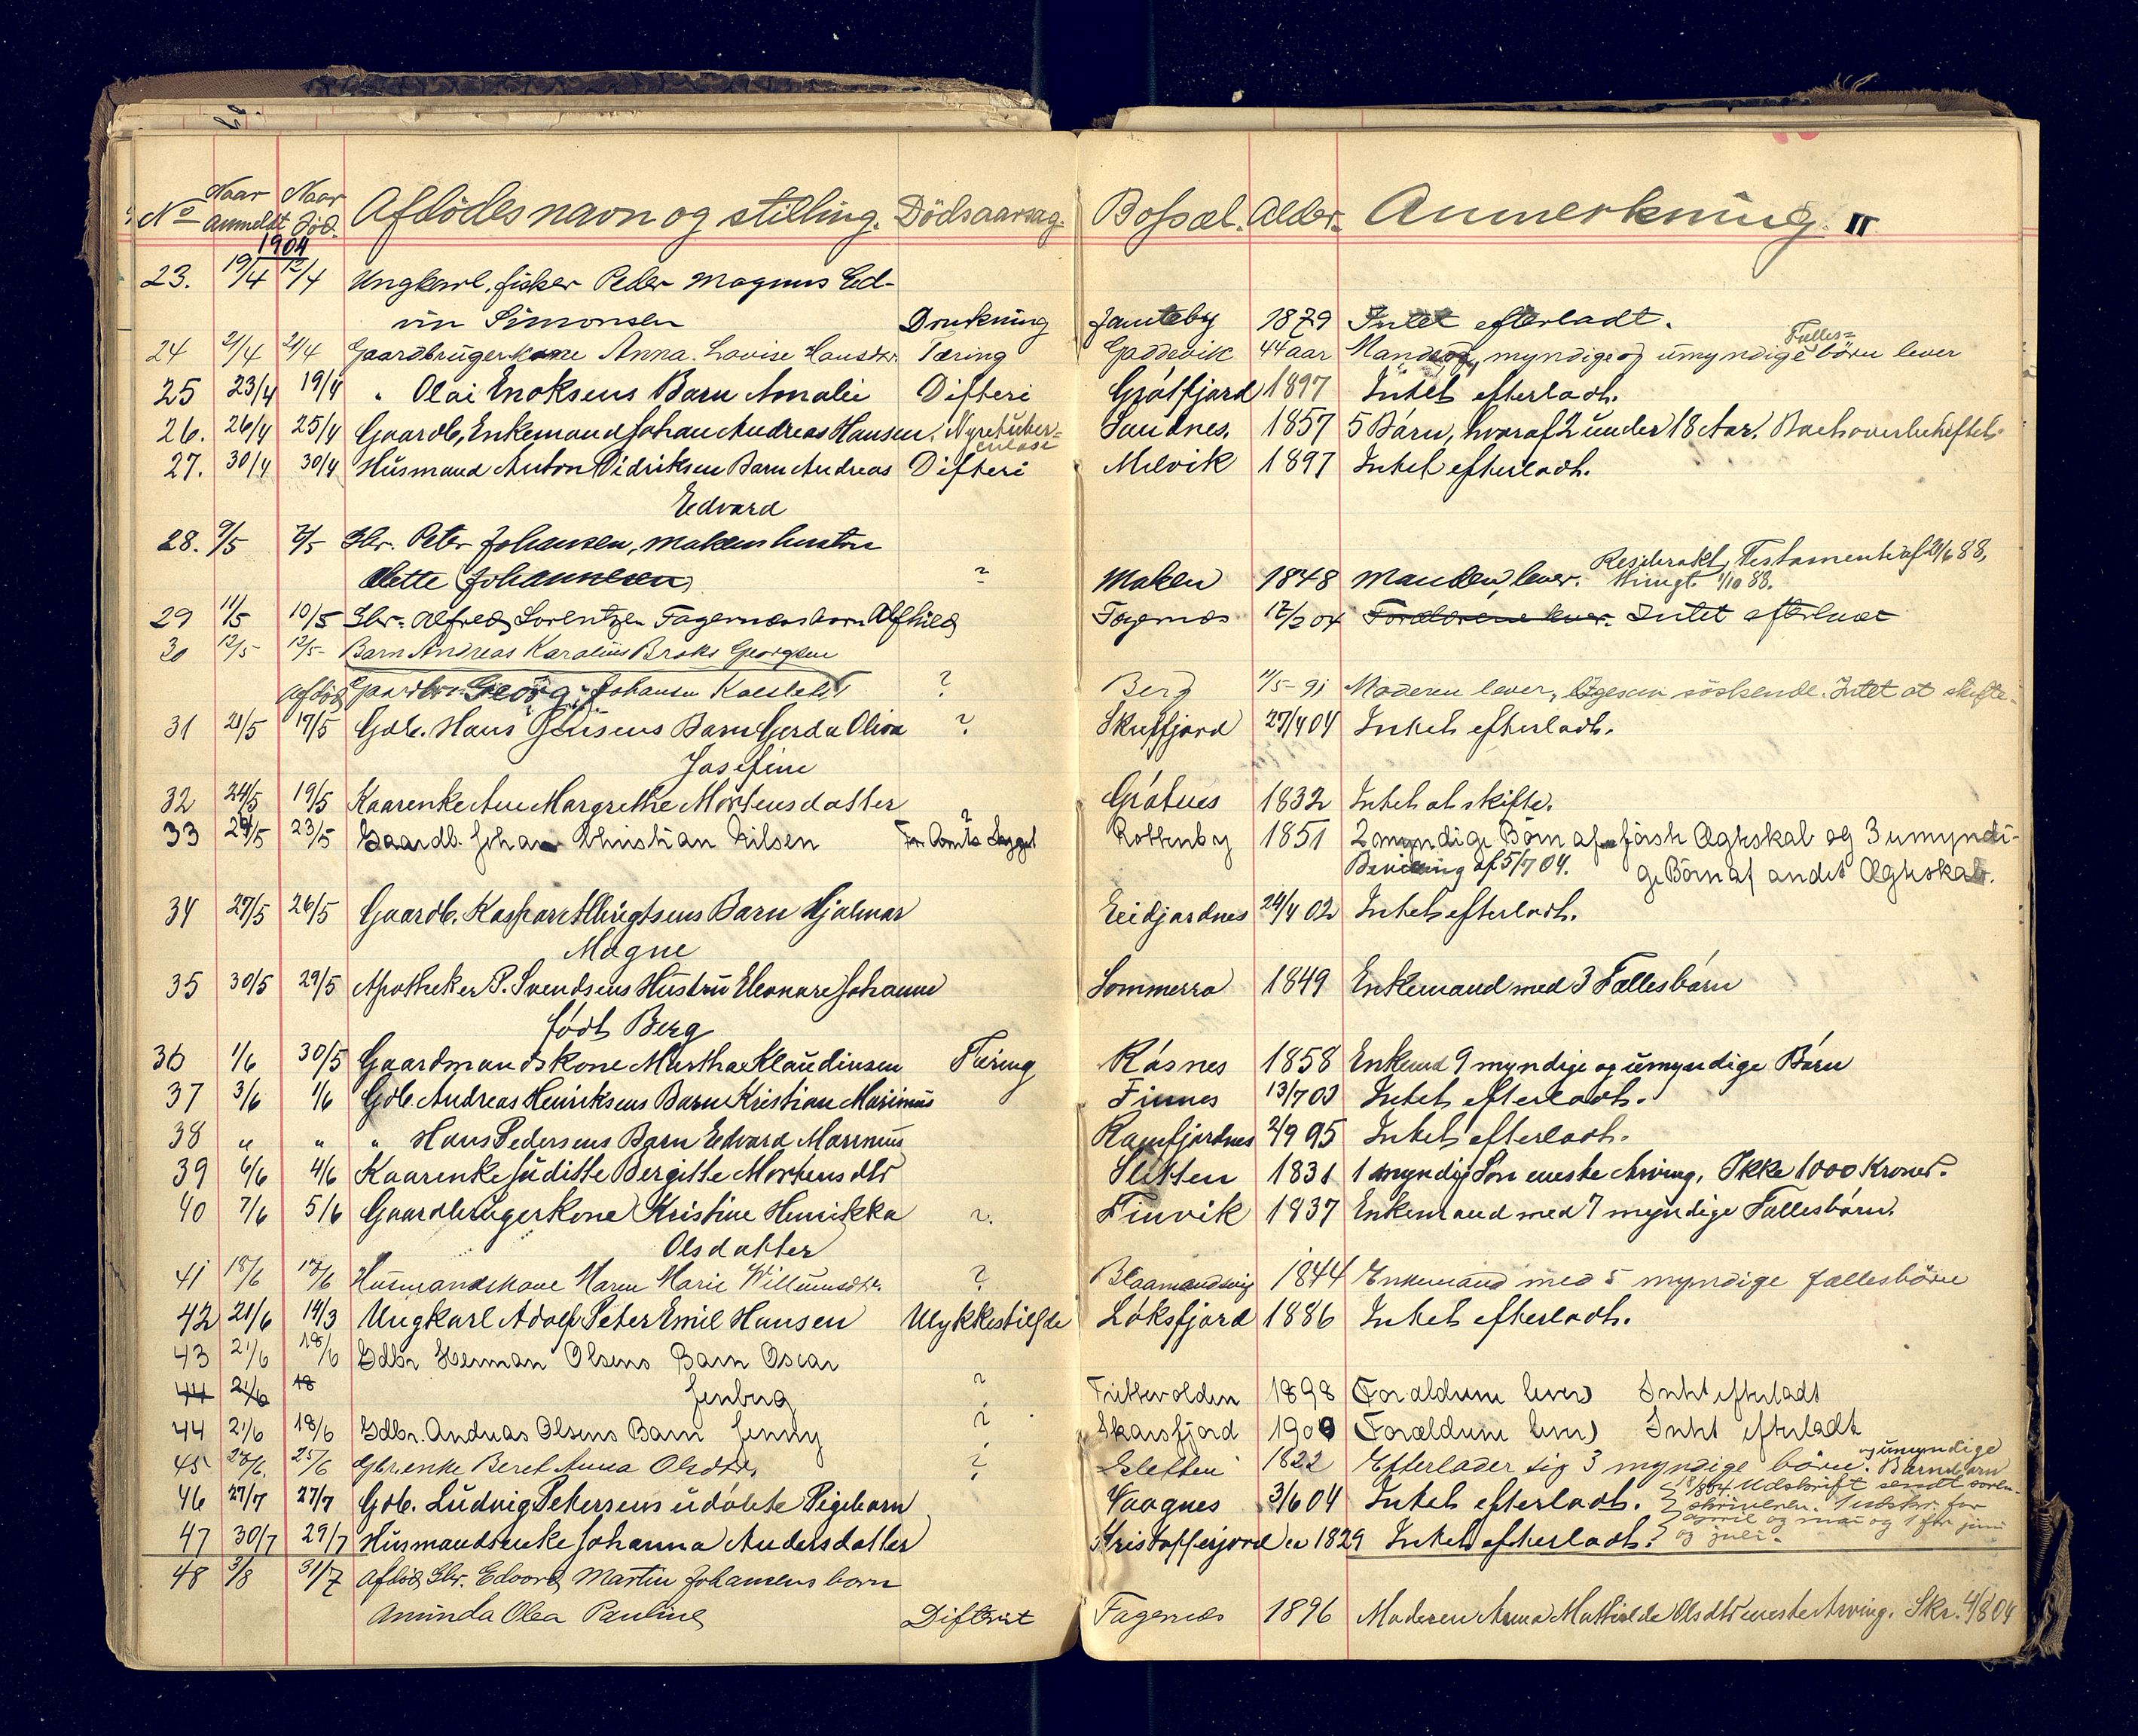 No Naar Anmeldt Naar Död. Afdödes navn og stilling. Dödsaarsag. Bopæl. Alder. Anmerkning. II
1904
23. 19/4 12/4 Ungkarl, fisker Peder Magnus Ed-
vin Simonsen Drukning Jamteby 1879 Intet efterladt.
24 21/4 21/4 Gaardbrugerkone Anna Lovise Hansdtr. Tæring Gaddevik 44 aar Mand og myndige og umyndige Fælles= börn lever
25 23/4 19/4 " Olai Enoksens Barn Amalie Difteri Grótfjord 1897 Intet efterladt.
26. 26/4 25/4 Gaardb. Enkemand Johan Andreas Hansen. Nyretuber= Sandnes. 1857 5 Bárn, hvoraf 2 under 18 Aar. Boet overbeheftet.
kulose
27. 30/4 30/4 Husmand Anton Didriksen Barn Andreas Difteri Melvik 1897 Intet efterladt.
Edvard
28. 9/5 7/5 Gbr. Peter Johansen, Maken hustru Resiprokt Testament af 21/6 88,
Alette Johannesen ? Maken 1848 Manden lever. thingl. 1/10 88.
29 11/5 10/5 Gbr. Alfred Lorentzen Fagernes barn Alfhild Fagernes 12/2 04 Forældrene lever. Intet efterladt
30 12/5 12/5 Barn Andreas Karolius Broks Georgsen
Afdöd Gaardbr. Georg Johansen ? Berg 11/5-91 Moderen lever, ligesaa söskende. Intet at skifte.
31 21/5 19/5 Gdb. Hans Jensens Barn Gerda Oliva ? Skulfjord 27/4 04 Intet efterladt.
Josefine
32 24/5 19/5 Kaarenke Ane Margrethe Mortensdatter ? Grótnes 1832 Intet at skifte.
33 24/5 23/5 Gaardb. Johan Christian Nilsen Rottenby 1851 2 myndige Börn af förste Ægteskab og 3 umyndi-
Bevilling af 5/7 04. ge Börn af andet Ægteskab.
34 27/5 26/5 Gaardb. Kaspar Albrigtsens Barn Hjalmar Eidjordnes 24/4 02 Intet efterladt.
Magne
35 30/5 29/5 Apotheker P. Svendsens Hustru Eleonore Johanne Sommerro 1849 Enkemand med 3 Fællesbárn
födt Berg
36 1/6 30/5 Gaardmandskone Martha Klaudiusen Tæring Rásnes 1858 Enkemd 9 myndige og umyndige Bárn
37 3/6 1/6 Gdb. Andreas Henriksens Barn Kristian Marinius Finnes 13/7 03 Intet efterladt.
38 " " " Hans Pedersens Barn Edvard Marinius Ramfjordnes 2/9 95 Intet efterladt.
39 6/6 4/6 Kaarenke Juditte Bergitte Mortensdtr Sletten 1831 1 myndig Son eneste Arving, Ikke 1000 Kroner.
40 7/6 5/6 Gaardbrugerkone Kristine Henrikka ?. Finvik 1837 Enkemand med 7 myndige Fællesbárn.
Olsdatter
41 18/6 17/6 Husmandskone Maren Marie Willumsdtr. ? Blaamandsvig 1844 Enkemand med 5 myndige fællesbörn
42 21/6 14/3 Ungkarl Adolf Peter Emil Hansen Ulykkestilfde Lóksfjord 1886 Intet efterladt.
43 21/6 18/6 Gdbr Herman Olsens Barn Oscar
44 21/6 18 Jenberg ? Trittevolden 1898 (Forældrene lever) Intet efterladt
44 21/6 18/6 Gdbr. Andreas Olsens Barn Jenny ? Skarsfjord 1900 (Forældrene lever) Intet efterladt
45 27/6. 25/6 Gbr.enke Beret Anna Olsdtr. ? Sletten 1822 Efterlader sig 3 myndige börn. og umyndige Barnebarn
46 27/7 27/7 Gdb. Ludvig Petersens udóbte Pigebarn Vaagnes 3/6 04 Intet efterladt. 8/8 04 Udskrift sendt soren-
skriveren. 1 udskr. for
47 30/7 29/7 Husmandsenke Johanna Andersdatter Kristofferjord ca 1829 Intet efterladt. april og mai og 1 for juni
og juli.
48 3/8 31/7 Afdöd Gbr. Edvard Martin Johansens barn
Aminda Olea Pauline Difterit Fagernes 1896 Moderen Anna Mathilde Olsdtr eneste Arving. Skr. 4/8 04